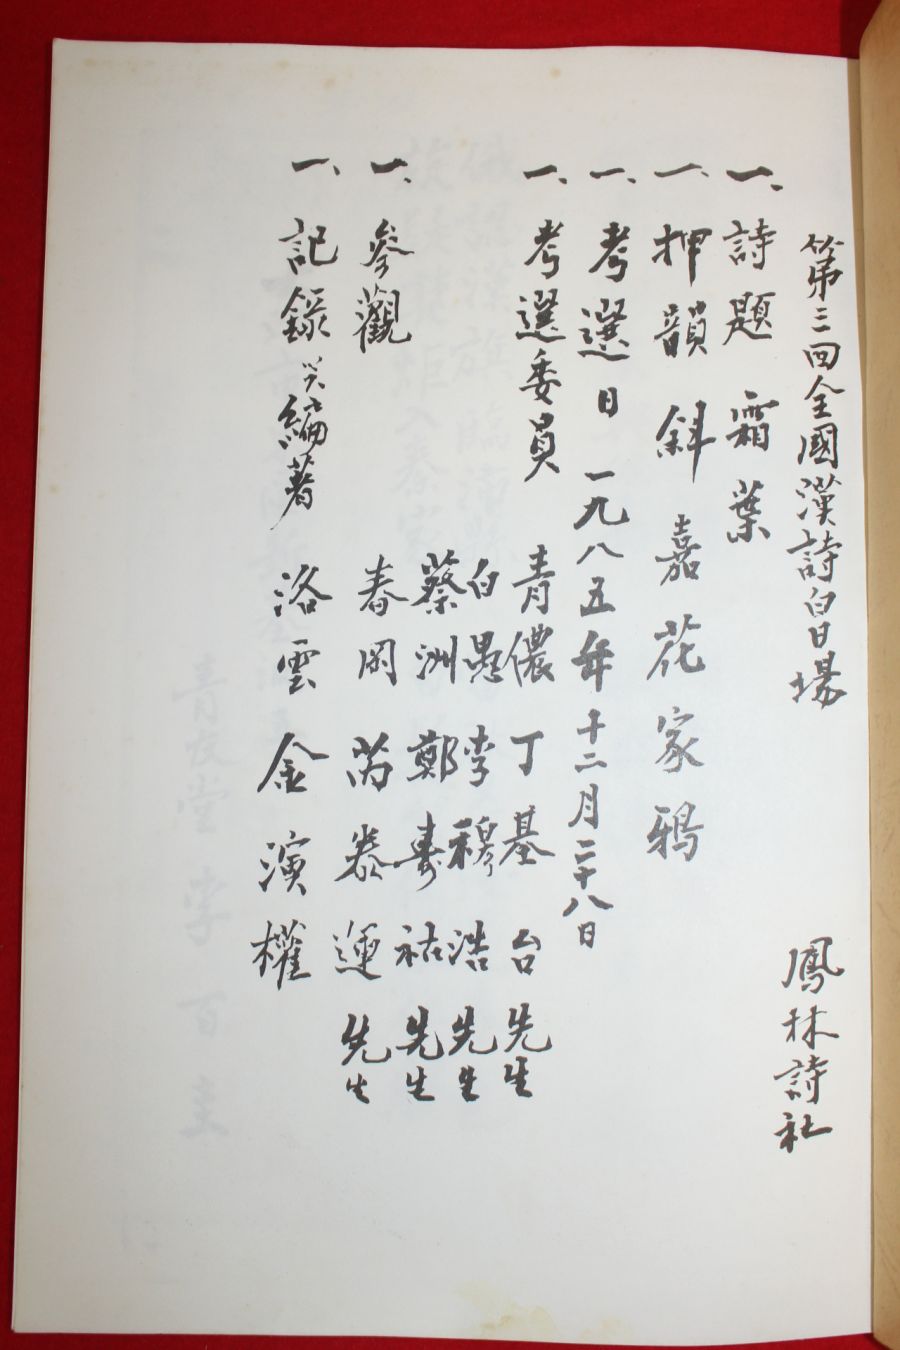 第三回全國漢詩白日場 鳳林詩社
一、詩題 霜葉
一、押韻 斜 嘉 花 家 鴉
一、考選日 一九八五年 十二月 二十八日
一、考選委員 青儂 丁基台 先生
白愚 李穆浩 先生
蔡洲 鄭壽祜 先生
一、參觀 春岡 芮泰運 先生
一、記錄 編著 洛雲 金演權